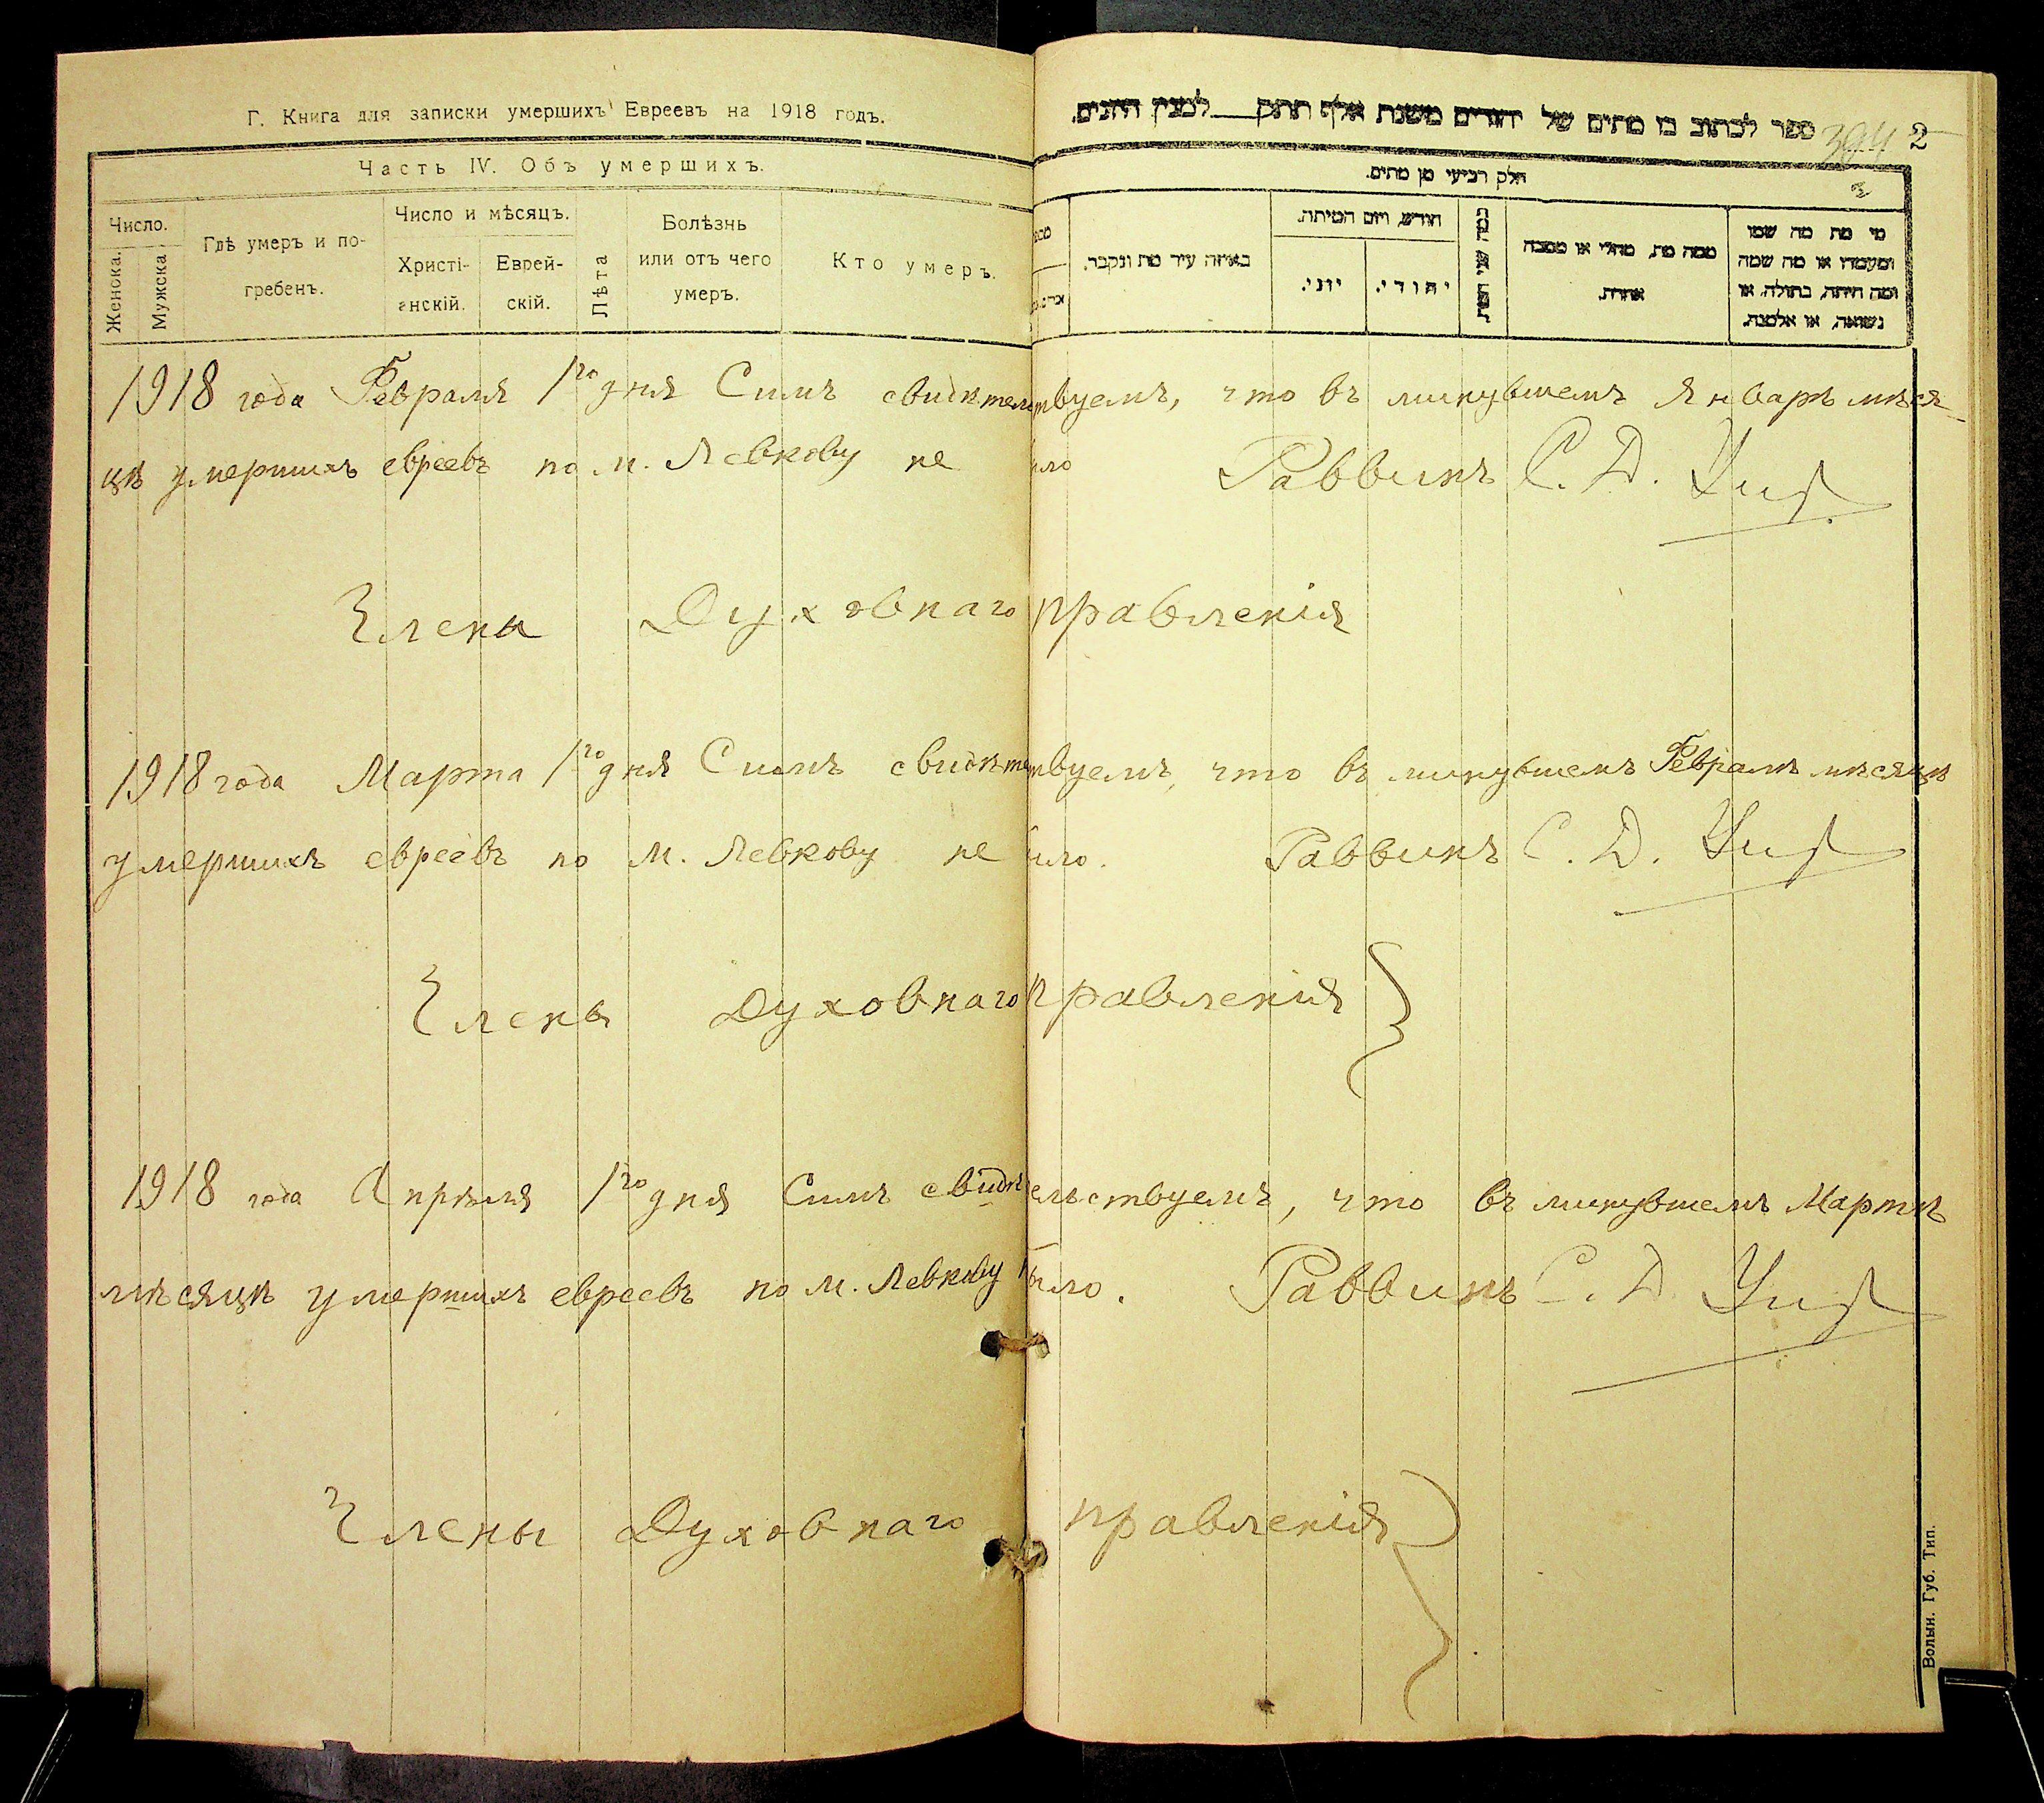 Г. Книга для записки умершихъ Евреевъ на 1918 годъ.
Часть IV. Объ умершихъ.
Число.
Женска.
Мужска
Гдѣ умеръ и по-
гребенъ.
Число и мѣсяцъ.
Христі-
анскій.
Еврей-
скій.
Лѣта
Болѣзнь
или отъ чего
умеръ.
Кто умеръ.
ספר לכתוב בו מתים של יהודים משנת אלף תתק למנין היונים.
394 2
חלק רביעי מן מתים.
2
באיזה עיר מת ונקבר.
חודש ויום המיתה.
יוני.
יהודי.
כמה שני המת
ממה מת, מחלי או מסבה
אחרת.
מי מת מה שמו
ומעמדו או מה שמה
ומה היתה, בתולה, או
נשואה, או אלמנה.
1918 года Февраля 1го дня Симъ свидѣтельствуемъ, что въ минувшемъ Январѣ мѣся-
цѣ умершихъ евреевъ по м. Левкову не было Раввинъ С. Д.
Члены Духовнаго правленія
1918 года Марта 1го дня Симъ свидѣтельствуемъ, что въ минувшемъ Февралѣ мѣсяцѣ
умершихъ евреевъ по м. Левкову не было. Раввинъ С. Д.
Члены Духовнаго правленія
1918 года Апрѣля 1го дня Симъ свидѣтельствуемъ, что въ минувшемъ Мартѣ
мѣсяцѣ умершихъ евреевъ по м. Левкову было. Раввинъ С. Д.
Члены Духовнаго правленія
Волын. Губ. Тип.